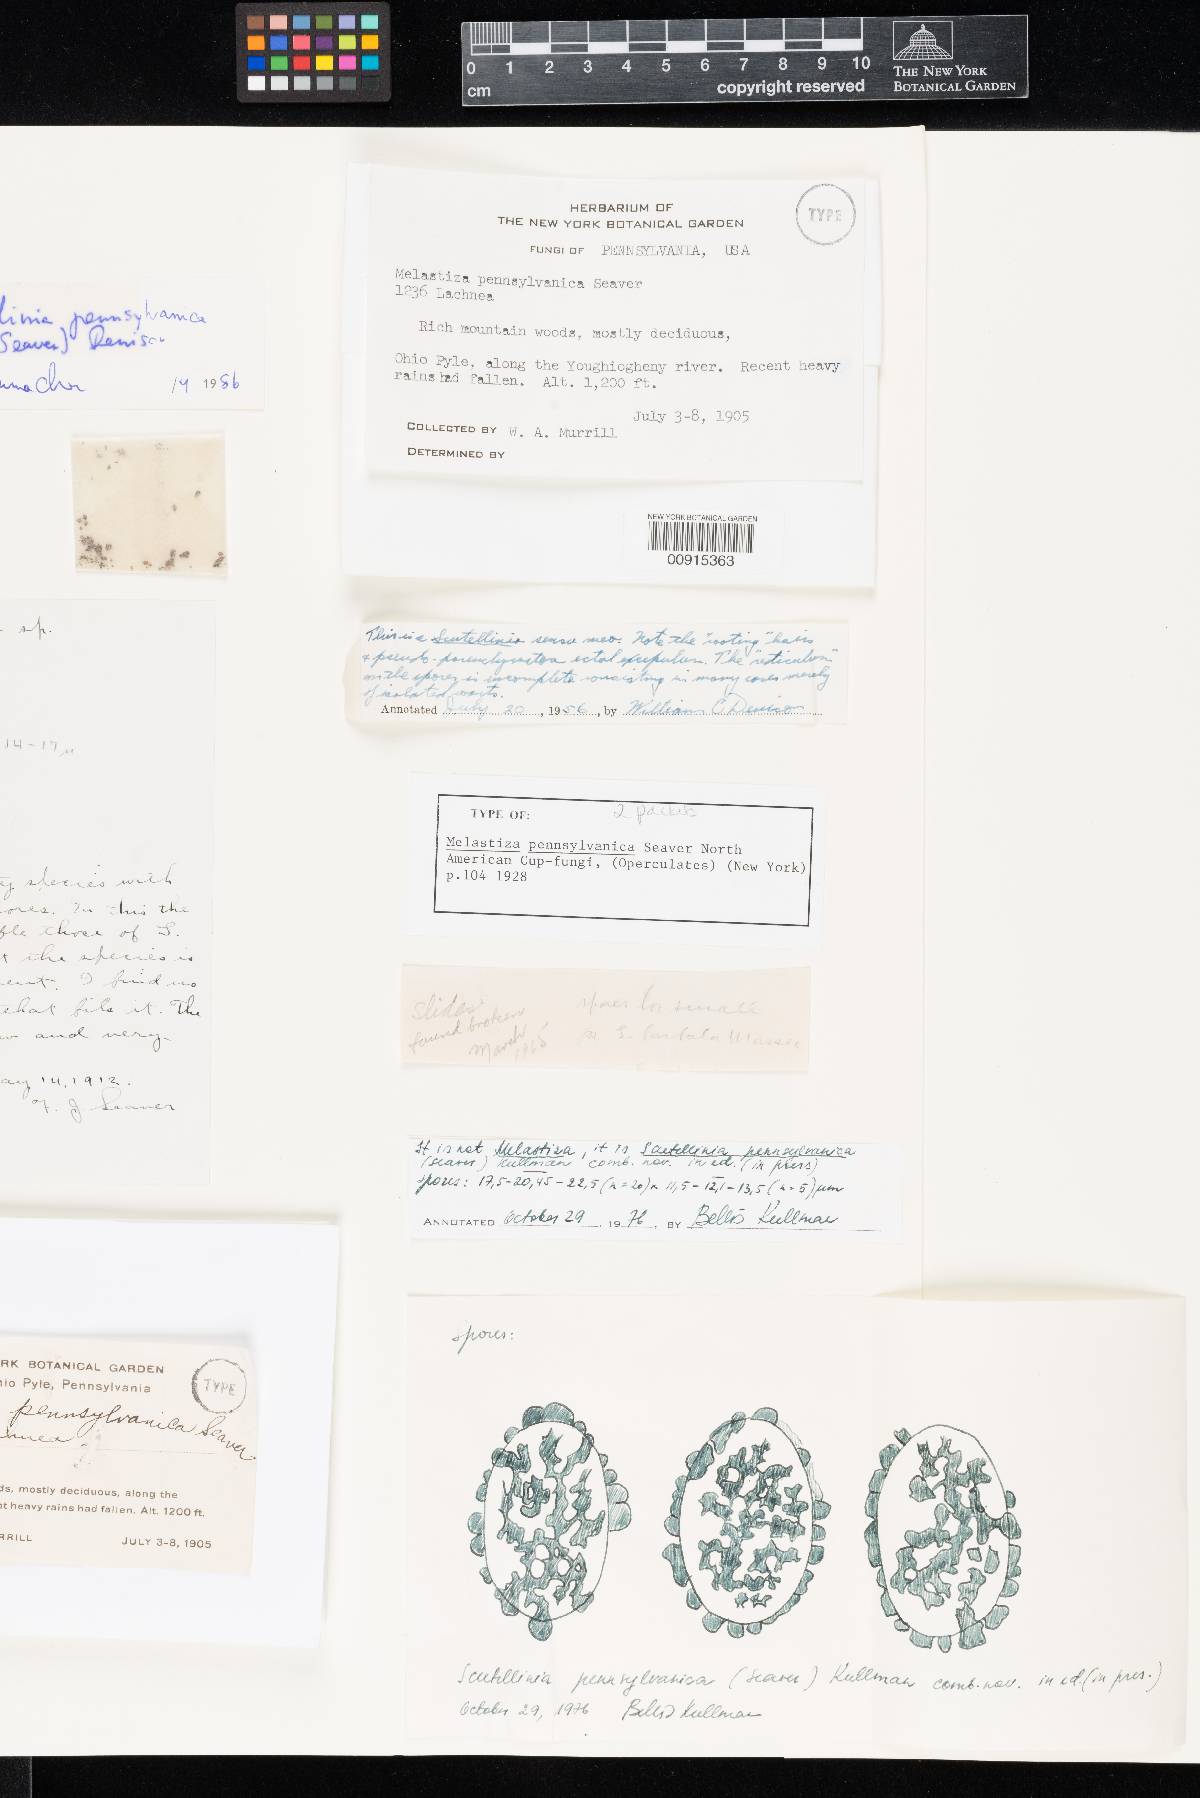 0 1 2 3 4 5 6 7 8 9 10
cm
copyright reserved
THE NEW YORK
BOTANICAL GARDEN
HERBARIUM OF
THE NEW YORK BOTANICAL GARDEN
TYPE
FUNGI OF PENNSYLVANIA, USA
Melastiza pennsylvanica Seaver
1236 Lachnea
Rich mountain woods, mostly deciduous,
Ohio Pyle, along the Youghiogheny river. Recent heavy
rains had fallen. Alt. 1,200 ft.
July 3-8, 1905
COLLECTED BY W. A. Murrill
DETERMINED BY
NEW YORK BOTANICAL GARDEN
00915363
linia pennsylvanica
Seaver) Denison
1986
This is a Scutellinia sensu meo. Note the "rooting" hairs
& pseudo-parenchymatous ectal excipulum. The "reticulum"
on the spores is incomplete consisting in many cases merely
of isolated warts.
Annotated July 20, 1956, by William C. Denison
sp.
14-17µ
species with
ores. In this the
those of S.
the species is
I find no
that fits it. The
and very
ay 14, 1912.
F. J Seaver
TYPE OF: 2 packets
Melastiza pennsylvanica Seaver North
American Cup-fungi, (Operculates) (New York)
p.104 1928
Slides
found broken
March 1965
spores too small
S. Massee
It is not Melastiza, it is Scutellinia pennsylvanica
(Seaver) Kullman comb. nov. in ed. (in press)
spores: 17,5-20,45-22,5 (n=20) × 11,5-12,1-13,5 (n=5) µm
ANNOTATED October 29, 1976, BY Bellis Kullman
RK BOTANICAL GARDEN
io Pyle, Pennsylvania
TYPE
pennsylvanica Seaver
ds, mostly deciduous, along the
t heavy rains had fallen. Alt. 1200 ft.
RRILL JULY 3-8, 1905
spores:
Scutellinia pennsylvanica (Seaver) Kullman comb. nov. in ed. (in pres.)
October 29, 1976 Bellis Kullman